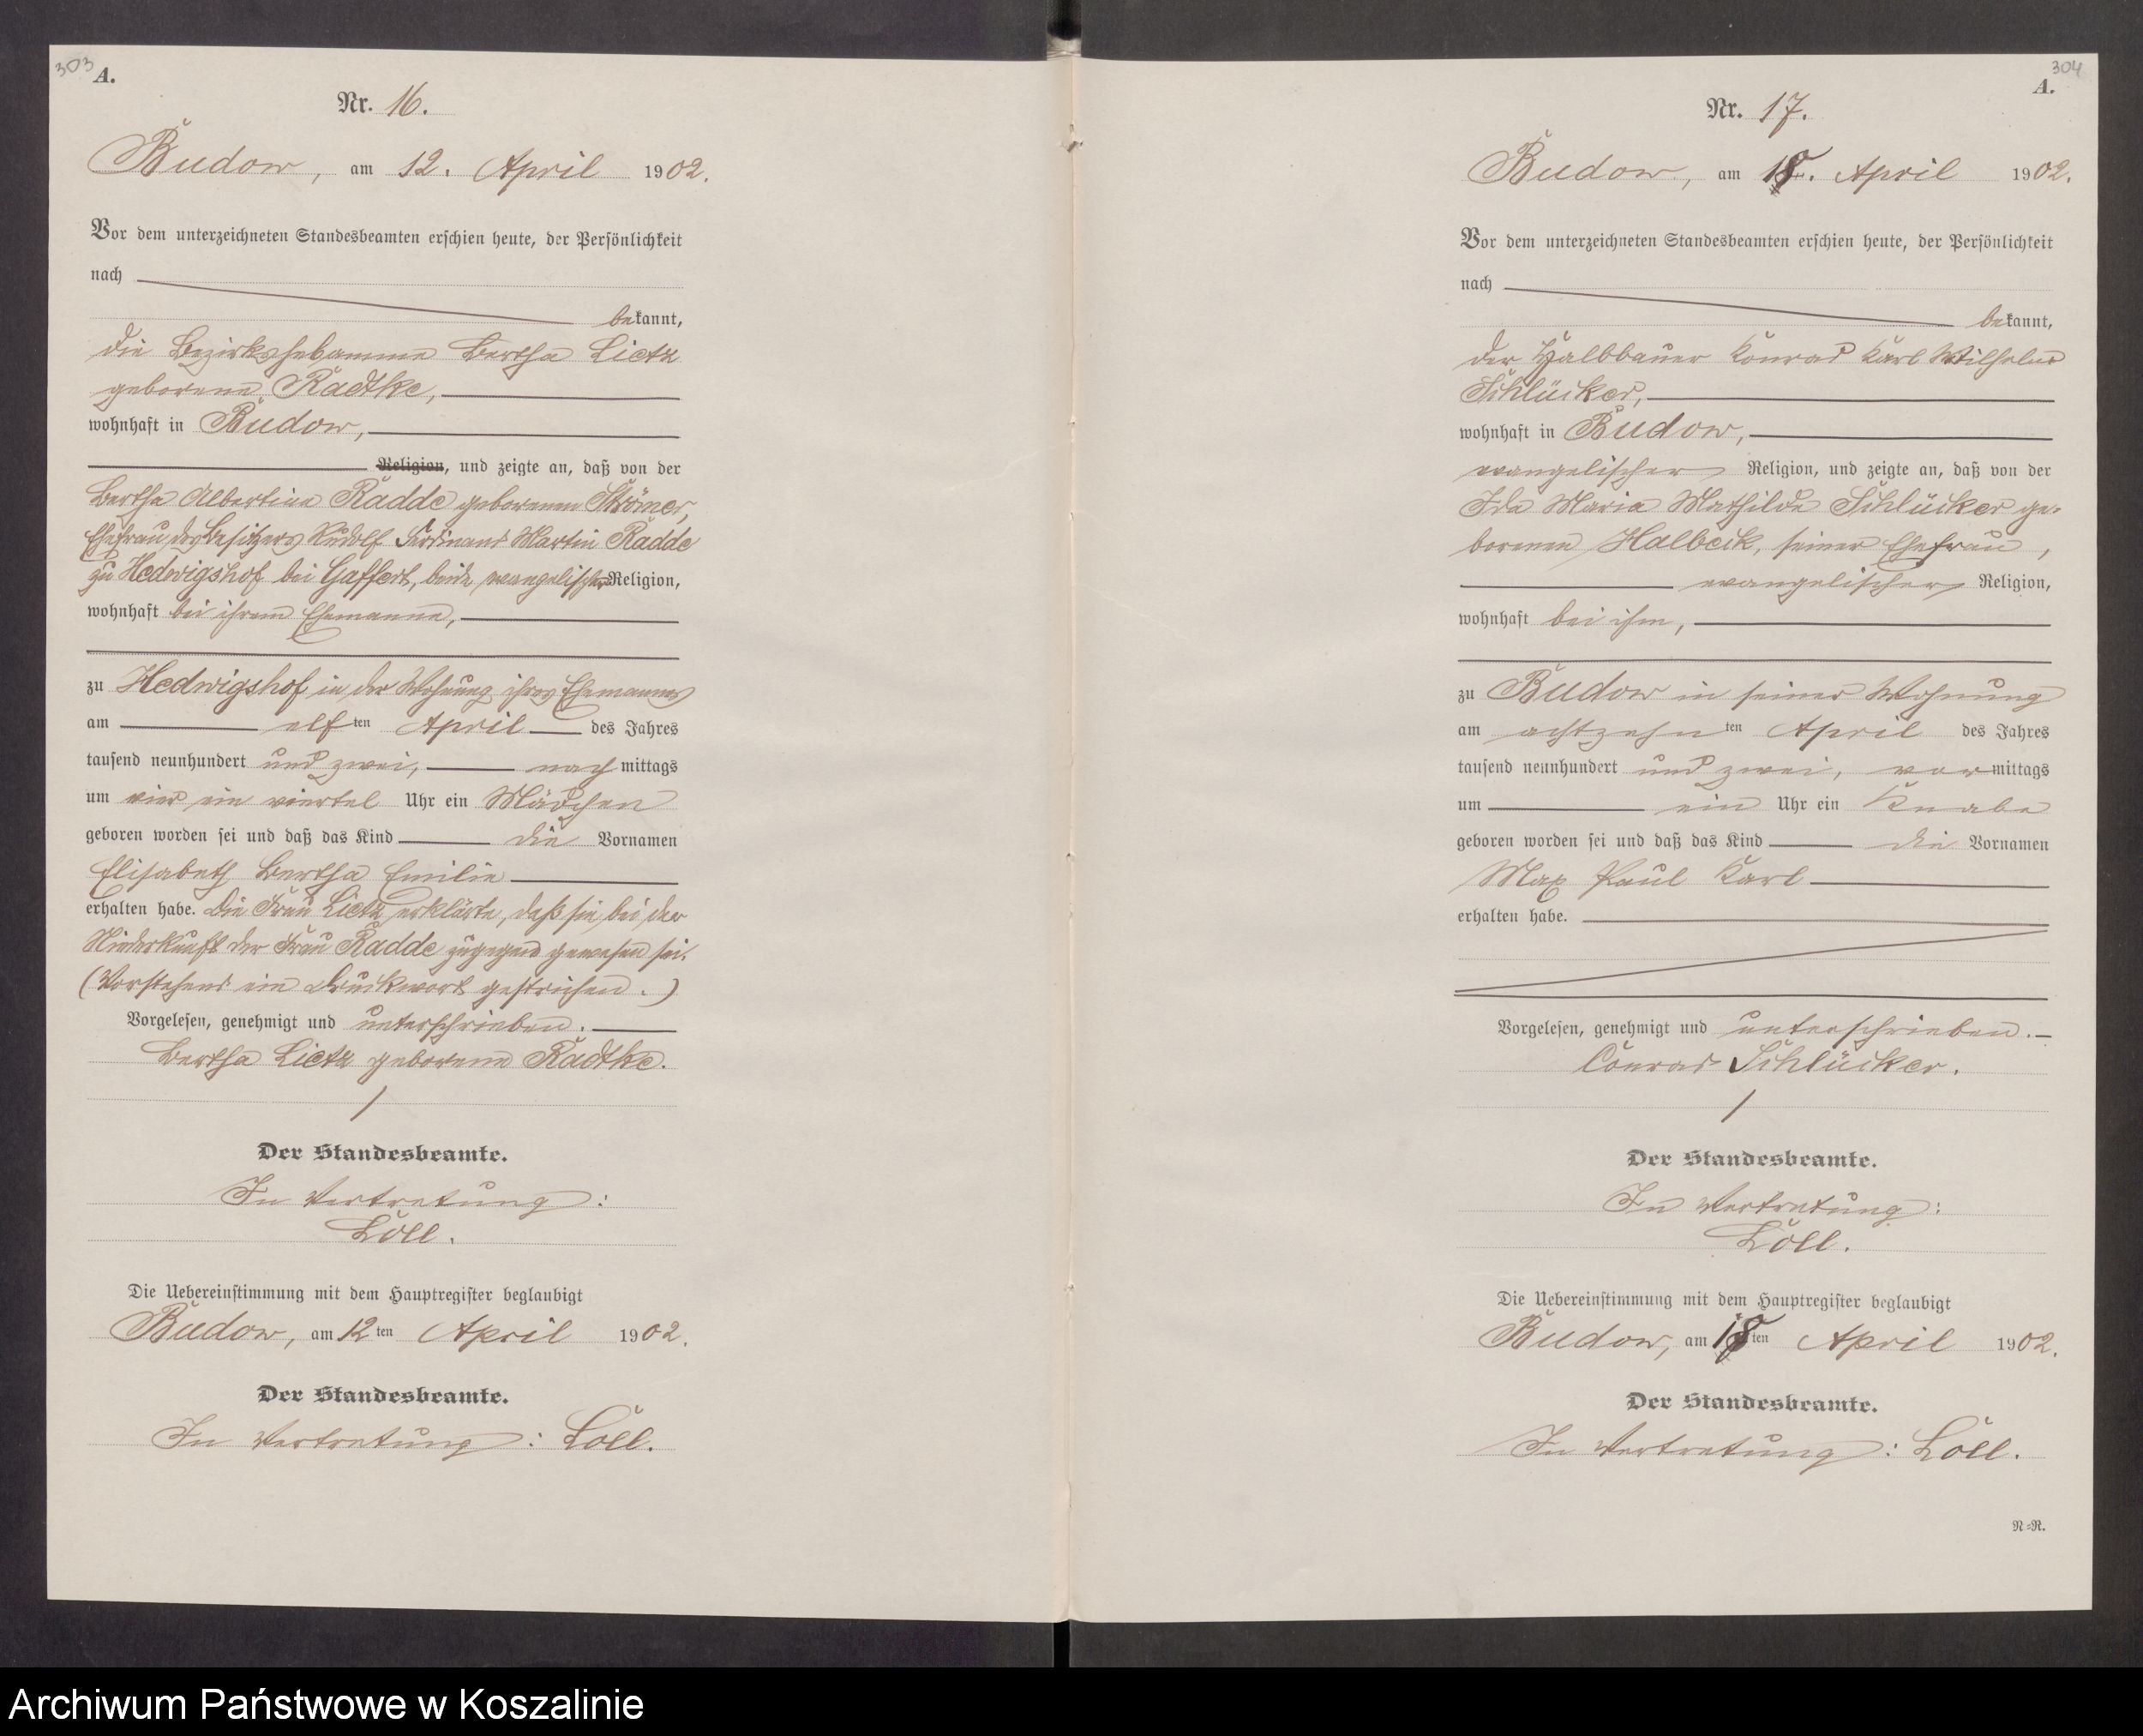 303
A.
Nr. 16.
Budow, am 12. April 1902.
Vor dem unterzeichneten Standesbeamten erschien heute, der Persönlichkeit
nach
bekannt,
die Bezirkshebamme Bertha Lietz
geborene Radtke,
wohnhaft in Budow,
Religion, und zeigte an, daß von der
Bertha Albertine Radde geborenen Strömer,
Ehefrau des Besitzers Rudolf Ferdinand Martin Radde
zu Hedwigshof bei Gaffert, beide evangelischer Religion,
wohnhaft bei ihrem Ehemanne,
zu Hedwigshof in der Wohnung ihres Ehemannes
am elften April des Jahres
tausend neunhundert und zwei, nachmittags
um vier ein viertel Uhr ein Mädchen
geboren worden sei und daß das Kind die Vornamen
Elisabeth Bertha Emilie
erhalten habe. Die Frau Lietz erklärte, daß sie bei der
Niederkunft der Frau Radde zugegend gewesen sei.
(Vorstehend ein Druckwort gestrichen.)
Vorgelesen, genehmigt und unterschrieben.
Bertha Lietz geborene Radtke.
Der Standesbeamte.
In Vertretung:
Löll.
Die Uebereinstimmung mit dem Hauptregister beglaubigt
Budow, am 12ten April 1902.
Der Standesbeamte.
In Vertretung: Löll.
304
A.
Nr. 17.
Budow, am 18. April 1902.
Vor dem unterzeichneten Standesbeamten erschien heute, der Persönlichkeit
nach
bekannt,
der Halbbauer Konrad Karl Wilhelm
Schlücker,
wohnhaft in Budow,
evangelischer Religion, und zeigte an, daß von der
Ida Maria Mathilde Schlücker ge-
borenen Halbeck, seiner Ehefrau,
evangelischer Religion,
wohnhaft bei ihm,
zu Budow in seiner Wohnung
am achtzehnten April des Jahres
tausend neunhundert und zwei, vormittags
um ein Uhr ein Knabe
geboren worden sei und daß das Kind die Vornamen
Max Paul Karl
erhalten habe.
Vorgelesen, genehmigt und unterschrieben.
Conrad Schlücker.
Der Standesbeamte.
In Vertretung:
Löll.
Die Uebereinstimmung mit dem Hauptregister beglaubigt
Budow, am 18ten April 1902.
Der Standesbeamte.
In Vertretung: Löll.
N=R.
Archiwum Państwowe w Koszalinie